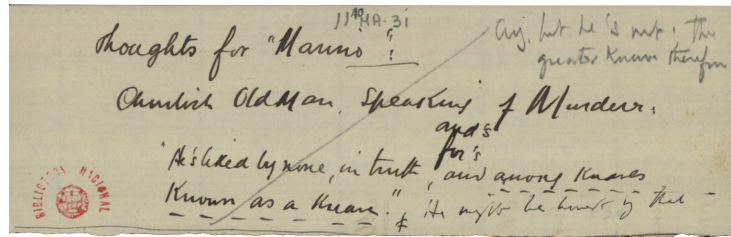 11⁴⁰ MA-31
Aye, but he's not: the
greater Knave therefore
Thoughts for "Marino":
Churlish Old Man, speaking of Murderer:
and's
for's
"He's liked by none, in truth, and among Knaves
Known as a Knave." He might be honest by that
BIBLIOTECA NACIONAL